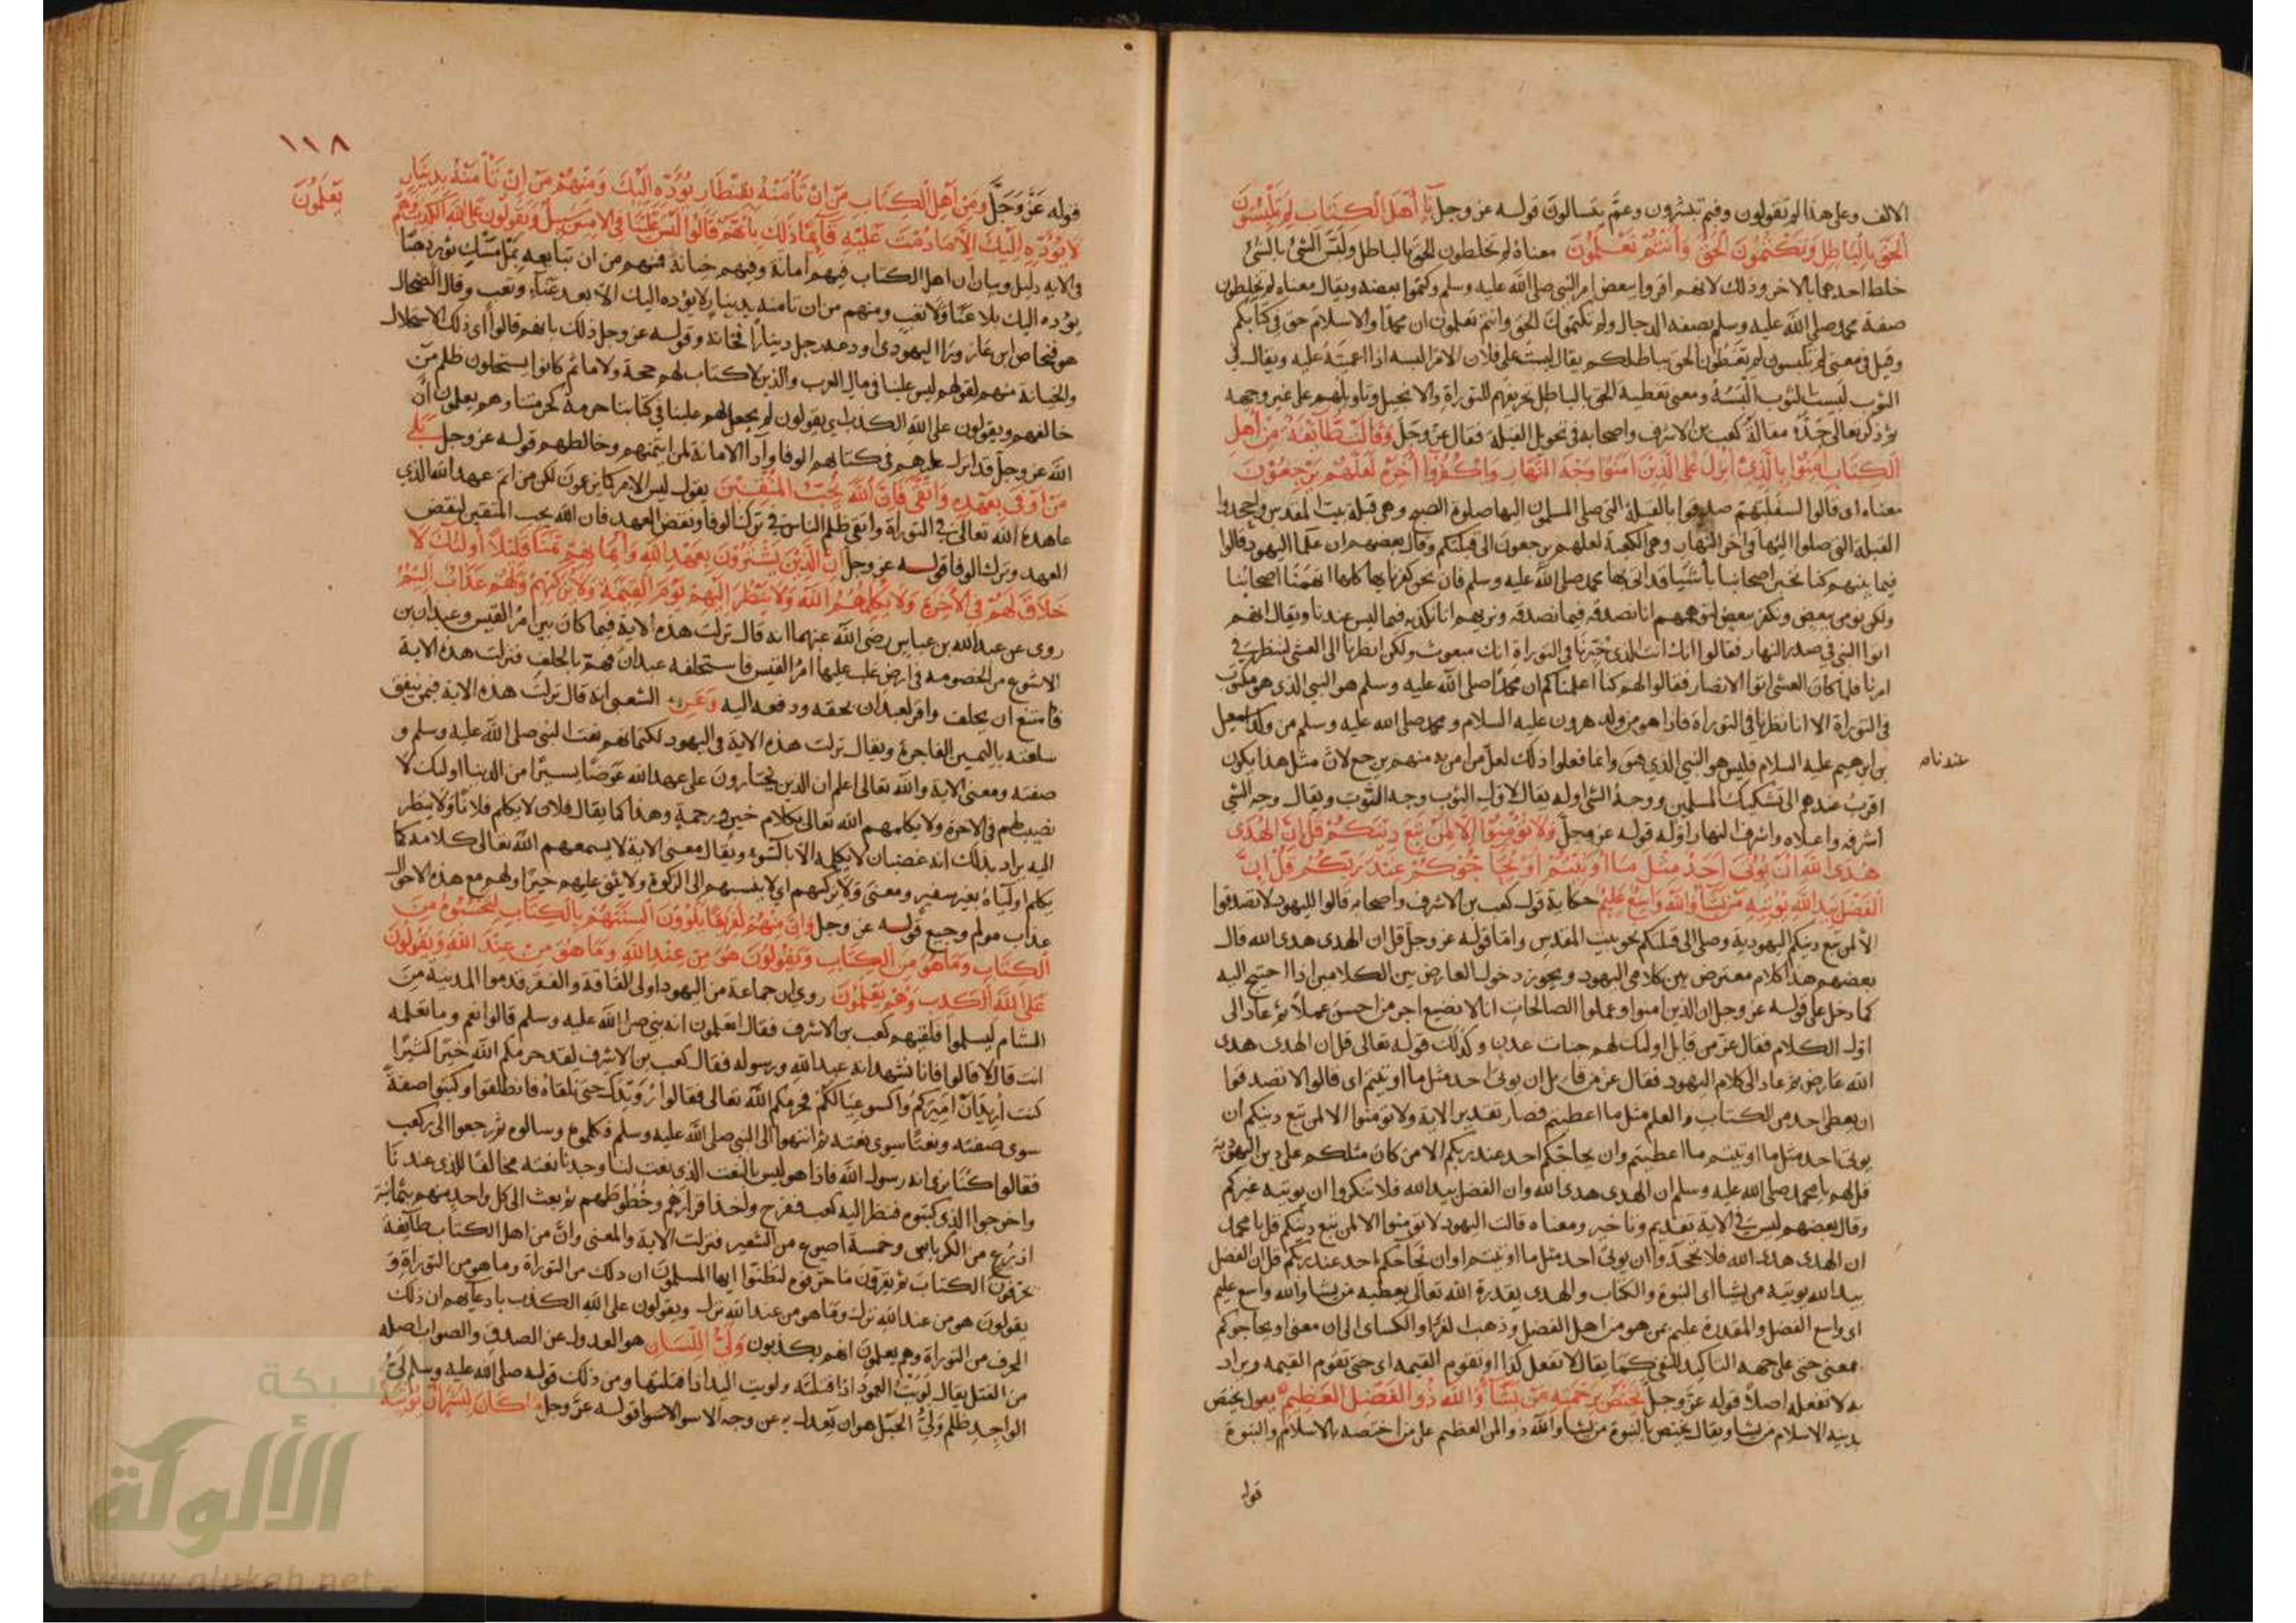 الالف وعلى هذا لم تقولون وفيم تبشرون وعم يتسالون قوله عز وجل يا أهل الكتاب لم تلبسون
الحق بالباطل وتكتمون الحق وأنتم تعلمون معناه لم تخلطون الحق بالباطل ولبس الشئ بالشئ
خلط احدهما بالاخر وذلك لانهم اقروا ببعض امر النبي صلى الله عليه وسلم وكتموا بعضه ويقال معناه لم تخلطون
صفة محمد صلى الله عليه وسلم بصفة الدجال ولم تكتمون الحق وانتم تعلمون ان محمدا والاسلام حق في كتابكم
وقيل في معنى لم تلبسون لم تغطون الحق بباطلكم يقال لبست على فلان الامر البسه اذا اعميته عليه ويقال في
الثوب لبست الثوب البسه ومعنى تغطية الحق بالباطل تحريفهم للتوراة والانجيل وتاويلهم على غير وجهه
ثم ذكر تعالى جده مقالة كعب بن الاشرف واصحابه في تحويل القبلة فقال عز وجل وقالت طائفة من أهل
الكتاب آمنوا بالذي أنزل على الذين آمنوا وجه النهار واكفروا آخره لعلهم يرجعون
معناه اي قالوا لسفلتهم صدقوا بالقبلة التي صلى المسلمون اليها صلوة الصبح وهي قبلة بيت المقدس واجحدوا
القبلة التي صلوا اليها في اخر النهار وهي الكعبة لعلهم يرجعون الى قبلتكم وقال بعضهم ان علما اليهود قالوا
فيما بينهم كنا نخبر اصحابنا بأشيا قد اتى بها محمد صلى الله عليه وسلم فان نحن كفرنا بها كلها اتهمنا اصحابنا
ولكن نومن ببعض ونكفر ببعض لنوهمهم انا نصدقه فيما نصدقه ونريهم انا نكذبه فيما ليس عندنا ويقال انهم
اتوا النبي في صدر النهار فقالوا انك انت الذي خبرنا في التوراة انك مبعوث ولكن انظرنا الى العشى لننظر في
امرنا فلما كان العشى اتوا الانصار فقالوا لهم كنا اعلمناكم ان محمدا صلى الله عليه وسلم هو النبي الذي هو مكتوب
في التوراة الا انا نظرنا في التوراة فاذا هو من ولد هرون عليه السلام ومحمد صلى الله عليه وسلم من ولد اسمعيل
بن ابرهيم عليه السلام فليس هو النبي الذي هو وانما فعلوا ذلك لعل من امن به منهم يرجع لان مثل هذا يكون
عندنا
اقرب عندهم الى تشكيك المسلمين ووجه الشي اوله يقال لاول الثوب وجه الثوب ويقال وجه الشي
أشرفه واعلاه واشرف النهار اوله قوله عز وجل ولا تؤمنوا إلا لمن تبع دينكم قل إن الهدى
هدى الله أن يؤتى أحد مثل ما أوتيتم أو يحاجوكم عند ربكم قل إن
الفضل بيد الله يؤتيه من يشاء والله واسع عليم حكاية قول كعب بن الاشرف واصحابه قالوا لليهود لا تصدقوا
الا لمن تبع دينكم اليهودية وصلى الى قبلتكم نحو بيت المقدس واما قوله عز وجل قل ان الهدى هدى الله قال
بعضهم هذا كلام معترض بين كلامي اليهود ويجوز دخول العارض بين الكلامين اذا احتيج اليه
كما دخل على قوله عز وجل ان الذين امنوا وعملوا الصالحات انا لا نضيع اجر من احسن عملا ثم عاد الى
اول الكلام فقال عز من قائل اولئك لهم جنات عدن وكذلك قوله تعالى قل ان الهدى هدى
الله عارض ثم عاد الى كلام اليهود فقال عز من قائل ان يوتى احد مثل ما اوتيتم اي قالوا لا تصدقوا
ان يعطى احد من الكتاب والعلم مثل ما اعطيتم فصار تقدير الاية ولا تومنوا الا لمن تبع دينكم ان
يوتى احد مثل ما اوتيتم ما اعطيتم وان يحاجكم احد عند ربكم الا من كان مثلكم على دين اليهودية
قل لهم يا محمد صلى الله عليه وسلم ان الهدى هدى الله وان الفضل بيد الله فلا تنكروا ان يوتيه غيركم
وقال بعضهم ليس في الاية تقديم وتاخير ومعناه قالت اليهود لا تومنوا الا لمن تبع دينكم قل يا محمد
ان الهدى هدى الله فلا تجحدوا ان يوتى احد مثل ما اوتيتم او ان يحاجكم احد عند ربكم قل ان الفضل
بيد الله يوتيه من يشا اي النبوة والكتاب والهدى بقدرة الله تعالى يعطيه من يشا والله واسع عليم
اي واسع الفضل والمقدرة عليم بمن هو من اهل الفضل وذهب الفرا والكساى الى ان معنى او يحاجوكم
بمعنى حتى على جهة التاكيد للنفي كما يقال لا تفعل كذا او تقوم القيمه اى حتى تقوم القيمه ويراد
به لا تفعله اصلا قوله عز وجل يختص برحمته من يشاء والله ذو الفضل العظيم يقول يختص
بدينه الاسلام من يشا ويقال يختص بالنبوة من يشا والله ذو المن العظيم على من اختصه بالاسلام والنبوة
قوله
١١٨
قوله عز وجل ومن أهل الكتاب من إن تأمنه بقنطار يؤده إليك ومنهم من إن تأمنه بدينار
لا يؤده إليك إلا ما دمت عليه قائما ذلك بأنهم قالوا ليس علينا في الأميين سبيل ويقولون على الله الكذب وهم
يعلمون
في الاية دليل وبيان ان اهل الكتاب فيهم امانة وفيهم خيانة فمنهم من ان تبايعه بملء مسك ثور ذهبا
يؤده اليك بلا عنا ولا تعب ومنهم من ان تامنه بدينار لا يؤده اليك الا بعد عناء وتعب وقال الضحاك
هو فنحاص ابن عازورا اليهودى اودعه رجل دينارا فخانه وقوله عز وجل ذلك بانهم قالوا اى ذلك الاستحلال
والخيانة منهم لقولهم ليس علينا في مال العرب والذين لا كتاب لهم حجة ولا ماثم كانوا يستحلون ظلم من
خالفهم ويقولون على الله الكذب اي يقولون لم يجعل لهم علينا في كتابنا حرمة كحرمتنا وهم يعلمون ان
الله عز وجل قد انزل عليهم في كتابهم الوفا وأدا الامانة لمن ائتمنهم وخالطهم قوله عز وجل بلى
من أوفى بعهده واتقى فإن الله يحب المتقين يقول ليس الامر كما يزعمون لكن من اتم عهد الله الذي
عاهده الله تعالى في التوراة واتقى ظلم الناس في ترك الوفا ونقض العهد فان الله يحب المتقين لنقض
العهد وترك الوفا قوله عز وجل إن الذين يشترون بعهد الله وأيمانهم ثمنا قليلا أولئك لا
خلاق لهم في الآخرة ولا يكلمهم الله ولا ينظر إليهم يوم القيمة ولا يزكيهم ولهم عذاب أليم
روى عن عبدالله بن عباس رضى الله عنهما انه قال نزلت هذه الاية فيما كان بين امرئ القيس وعبدان بن
الاشوع من الخصومه في ارض غلب عليها امرؤ القيس فاستحلفه عبدان فهم بالحلف فنزلت هذه الاية
فامتنع ان يحلف واقر لعبدان بحقه ودفعه اليه وعن الشعبي انه قال نزلت هذه الاية فيمن ينفق
سلعته باليمين الفاجرة ويقال نزلت هذه الاية في اليهود لكتمانهم نعت النبي صلى الله عليه وسلم و
صفته ومعنى الاية والله تعالى اعلم ان الذين يختارون على عهد الله عوضا يسيرا من الدنيا اولئك لا
نصيب لهم في الاخرة ولا يكلمهم الله تعالى بكلام خير ورحمة وهذا كما يقال فلان لا يكلم فلانا ولا ينظر
اليه يراد بذلك انه غضبان لا يكلمه الا بالسوء ويقال معنى الاية لا يسمعهم الله تعالى كلامه كما
يكلم اولياه بغير سفير ومعنى ولا يزكيهم اي لا ينسبهم الى الزكوة ولا يثنى عليهم خيرا ولهم مع هذه الاحوال
عذاب مولم وجيع قوله عز وجل وإن منهم لفريقا يلوون ألسنتهم بالكتاب لتحسبوه من
الكتاب وما هو من الكتاب ويقولون هو من عند الله وما هو من عند الله ويقولون
على الله الكذب وهم يعلمون روي ان جماعة من اليهود اولى الفاقة والفقر قدموا المدينة من
الشام ليسلموا فلقيهم كعب بن الاشرف فقال اتعلمون انه نبي صلى الله عليه وسلم قالوا نعم وما تعلمه
انت قال لا قالوا فانا نشهد انه عبد الله ورسوله فقال كعب بن الاشرف لقد حرمكم الله خيرا كثيرا
كنت أريد أن أميركم واكسو عيالكم فحرمكم الله تعالى فقالوا رويدك حتى نلقاه فانطلقوا وكتبوا صفة
سوى صفته ونعتا سوى نعته ثم انتهوا الى النبي صلى الله عليه وسلم فكلموه وسالوه ثم رجعوا الى كعب
فقالوا كنا نرى انه رسول الله فاذا هو ليس بالنعت الذي نعت لنا وجدنا نعته مخالفا للذى عندنا
واخرجوا الذي كتبوه فنظر اليه كعب ففرح واخذ اقرارهم وخطوطهم ثم بعث الى كل واحد منهم بثمانية
اذرع من الكرباس وخمسة اصوع من الشعير فنزلت الاية والمعنى وان من اهل الكتاب طائفة
يحرفون الكتاب ثم يقرؤن ما حرفوه لتظنوا ايها المسلمون ان ذلك من التوراة وما هو من التوراة و
يقولون هو من عند الله نزل وما هو من عند الله نزل ويقولون على الله الكذب بادعايهم ان ذلك
المحرف من التوراة وهم يعلمون انهم يكذبون ولي اللسان هو العدول عن الصدق والصواب اصله
من الفتل يقال لويت العمود اذا فتلته ولويت اليد اذا فتلتها ومن ذلك قوله صلى الله عليه وسلم لي
الواجد ظلم ولي الحبل هو ان يعدل به عن وجه الاستوا قوله عز وجل ما كان لبشر أن يؤتيه
شبكة
الألوكة
www.alukah.net